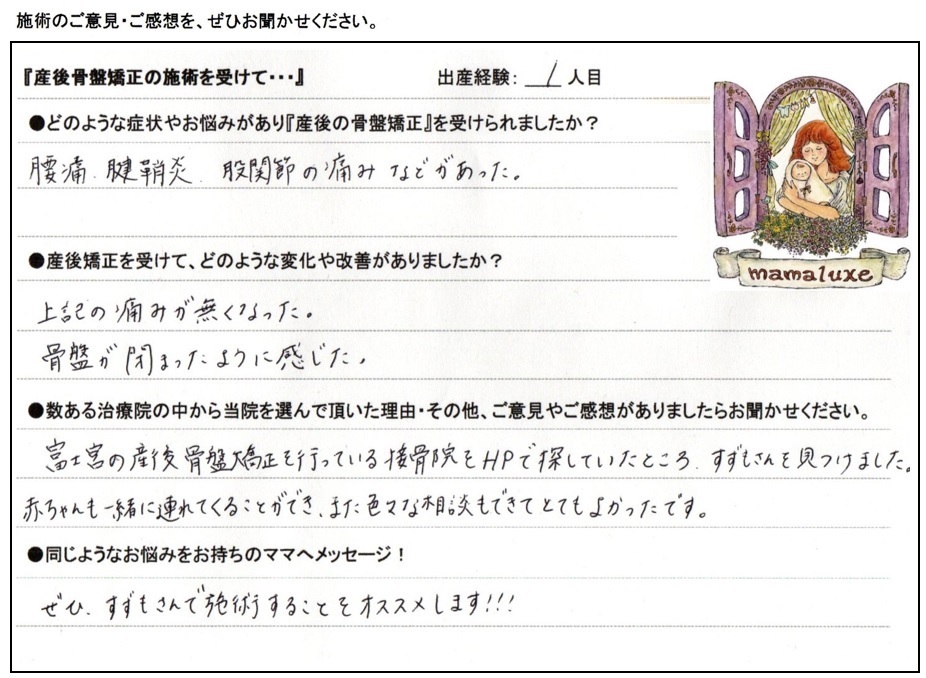 施術のご意見・ご感想を、ぜひお聞かせください。
『産後骨盤矯正の施術を受けて・・・』 出産経験: 1 人目
●どのような症状やお悩みがあり『産後の骨盤矯正』を受けられましたか?
腰痛、腱鞘炎、股関節の痛みなどがあった。
●産後矯正を受けて、どのような変化や改善がありましたか?
mamaluxe
上記の痛みが無くなった。
骨盤が閉まったように感じた。
●数ある治療院の中から当院を選んで頂いた理由・その他、ご意見やご感想がありましたらお聞かせください。
富士宮の産後骨盤矯正を行っている接骨院をHPで探していたところ、すずもさんを見つけました。
赤ちゃんも一緒に連れてくることができ、また色々な相談もできてとてもよかったです。
●同じようなお悩みをお持ちのママへメッセージ!
ぜひ、すずもさんで施術することをオススメします!!!